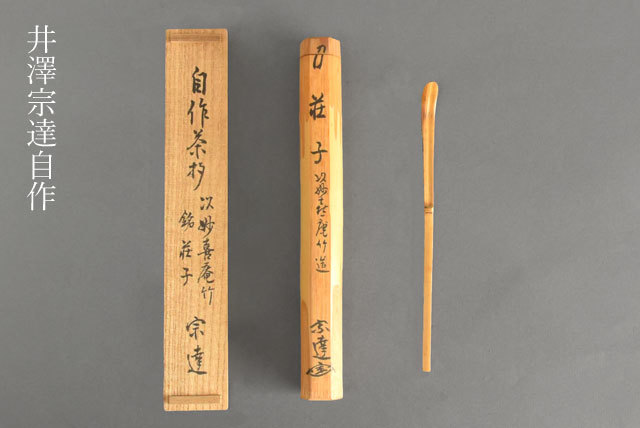 井澤宗達自作
自作茶杓
以妙喜庵竹
銘 荘子
宗達
荘子
以妙喜庵竹造
宗達